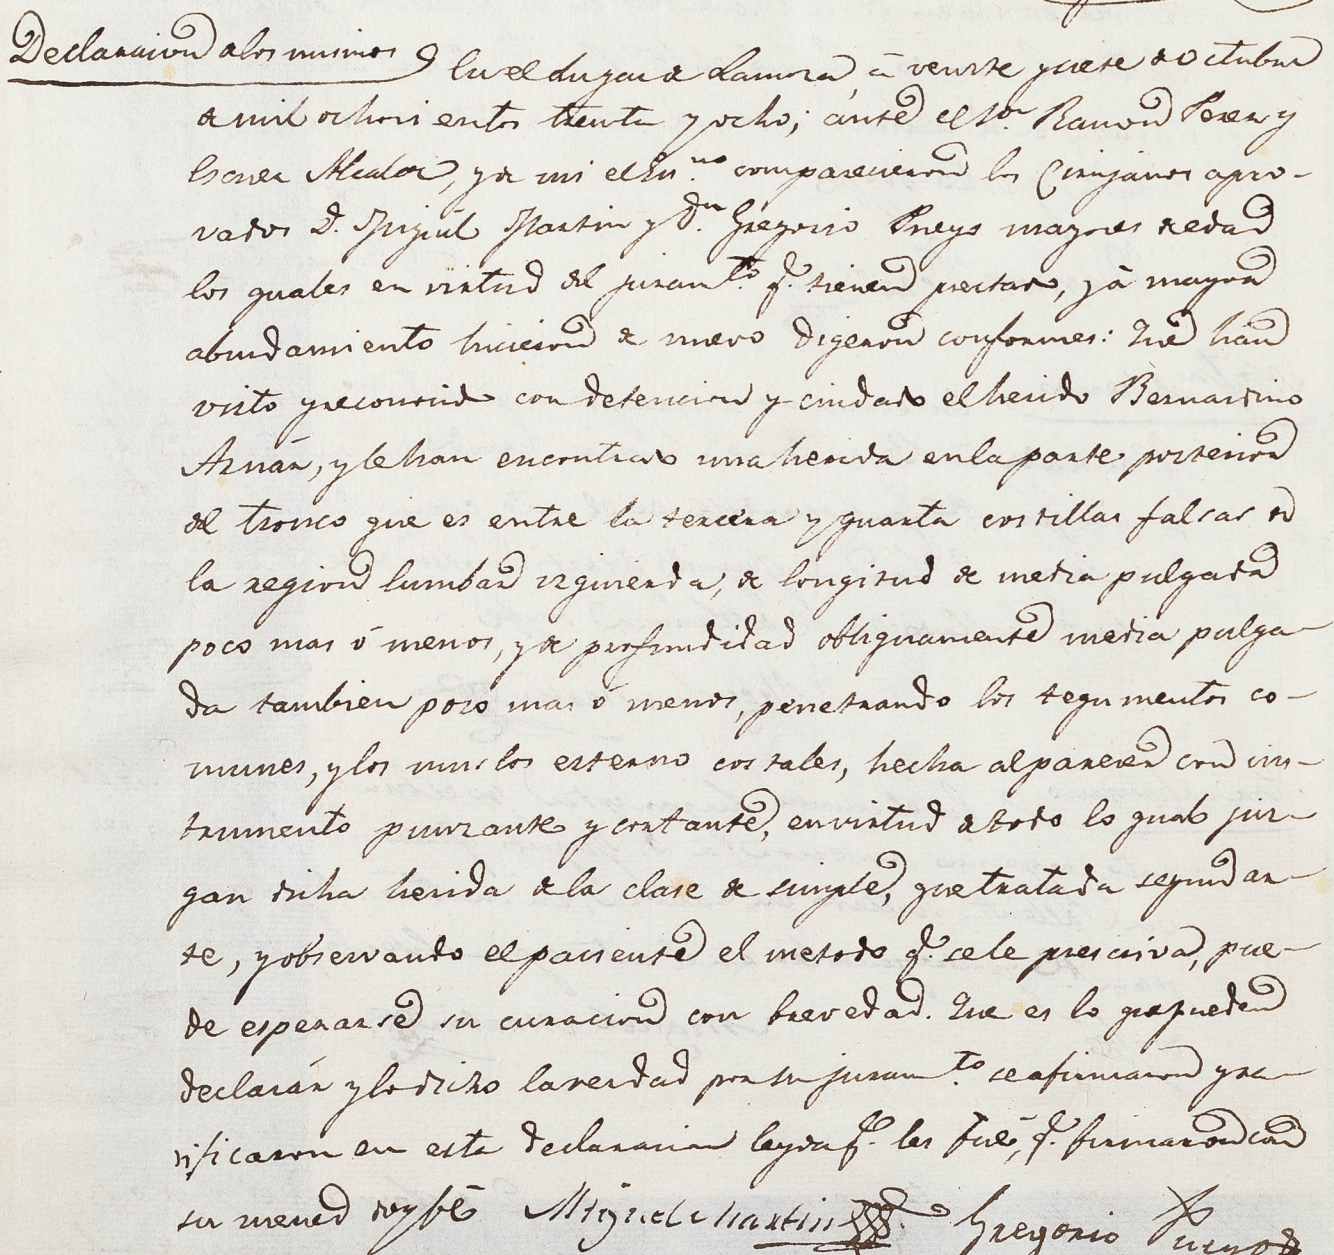 Declaracion a los mismos
En el Lugar de Lamora, á veinte y siete de Octubre
de mil ochocientos treinta y ocho; ante el Sor. Ramon Perez y
Alcalde, y de mi el Essno. comparecieron los Cirujanos apro-
vados D. Miguel Martin y Dn. Gregorio Pueyo mayores de edad
los quales en virtud del juramto. q.e tienen prestado, y á mayor
abundamiento hicieron de nuevo digeron conformes: Que han
visto y reconocido con detencion y cuidado el herido Bernardino
Aznár, y le han encontrado una herida en la parte posterior
del tronco que es entre la tercera y quarta costillas falsas de
la region lumbar izquierda, de longitud de media pulgada
poco mas ó menos, y de profundidad obliguamente media pulga-
da tambien poco mas ó menos, penetrando los tegumentos co-
munes, y los muslos esterno costales, hecha al parecer con ins-
trumento punzante y cortante, en virtud de todo lo qual juz-
gan dicha herida de la clase de simple, que tratada segun ar-
te, y observando el paciente el metodo q.e se le prescriva, pue-
de esperarse su curacion con brevedad. Que es lo que pueden
declarár y lo dicho la verdad por su juramto. se afirmaron y ra-
tificaron en esta declaracion leyda q.e les fué, q.e firmaron con
su merced doy fé Miguel Martin Gregorio Pueyo